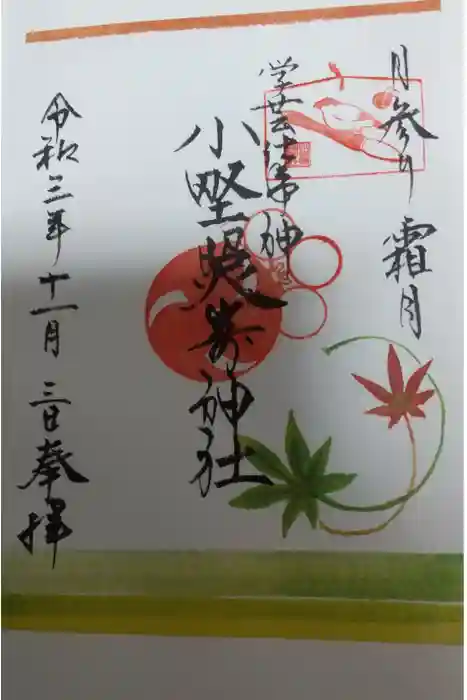 月参り 霜月
学業の神
小野照崎神社
令和三年十一月三日奉拝